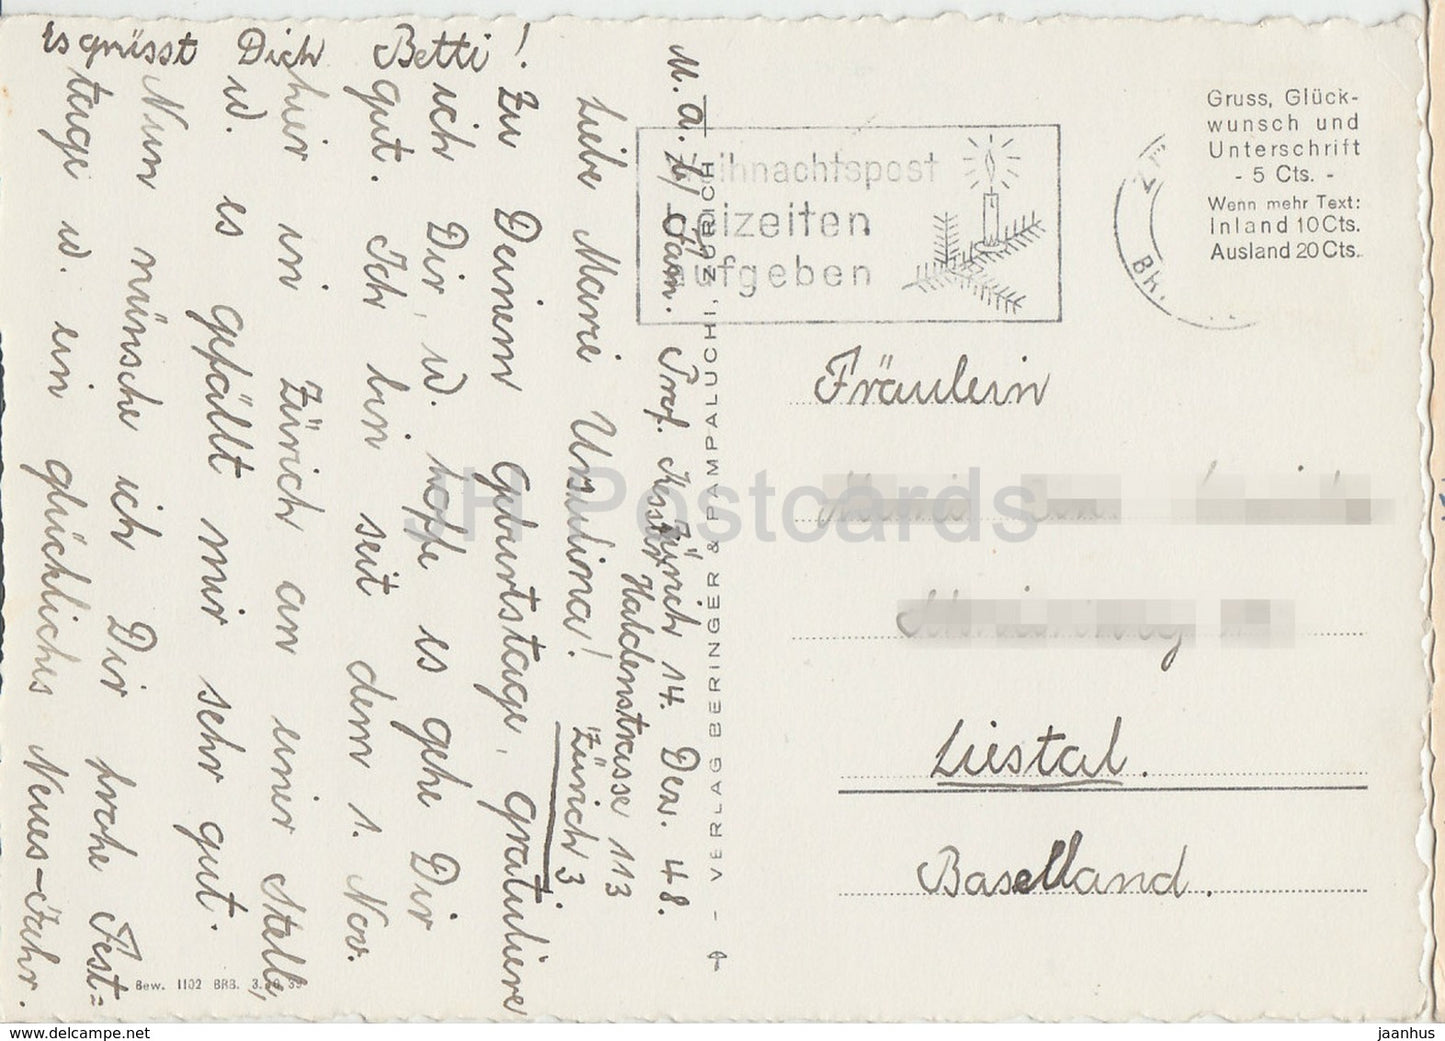 M. a. b/ Fam. Prof.
Zürich 14. Dez. 48.
Haldenstrasse 113
Zürich 3
Liebe Marie Ursulina!
Zu Deinem Geburtstage, gratuliere
ich Dir, u. hoffe es gehe Dir
gut. Ich bin seit dem 1. Nov.
hier in Zürich an einer Stelle,
u. es gefällt mir sehr gut.
Nun wünsche ich Dir frohe Fest=
tage u. ein glückliches Neues-Jahr.
Es grüsst Dich Betti!
VERLAG BERINGER & PAMPALUCHI, ZÜRICH
Bew. 1102 BRB. 3.10.39
Weihnachtspost
beizeiten
aufgeben
Gruss, Glück-
wunsch und
Unterschrift
- 5 Cts. -
Wenn mehr Text:
Inland 10 Cts.
Ausland 20 Cts.
Fräulein
Liestal.
Baselland.
JH Postcards
www.delcampe.net
jaanhus